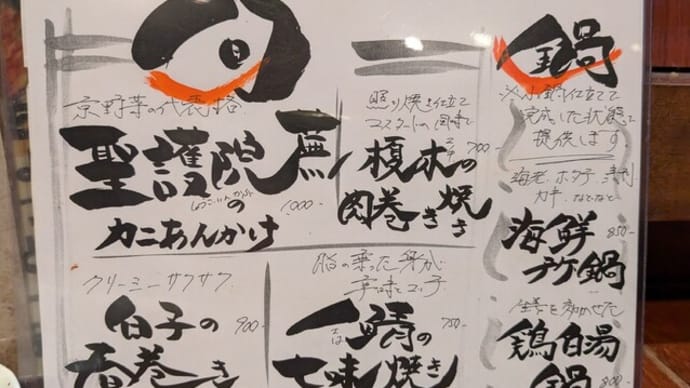 鍋
小鍋仕立てで
完成した状態で
提供します
海老、ホタテ、
カキ、などなど
海鮮
プケ鍋
850-
生姜を効かせた
鶏白湯
鍋
800-
照り焼き仕立て
マスタードの風味で
榎木の
肉巻き焼き
700-
京野菜の代表格
聖護院蕪
しょうごいんかぶら
の
カニあんかけ
1,000-
脂の乗った身が
辛味と
鯖の
さば
七味焼き
750-
クリーミーサクサク
白子の
春巻き
900-